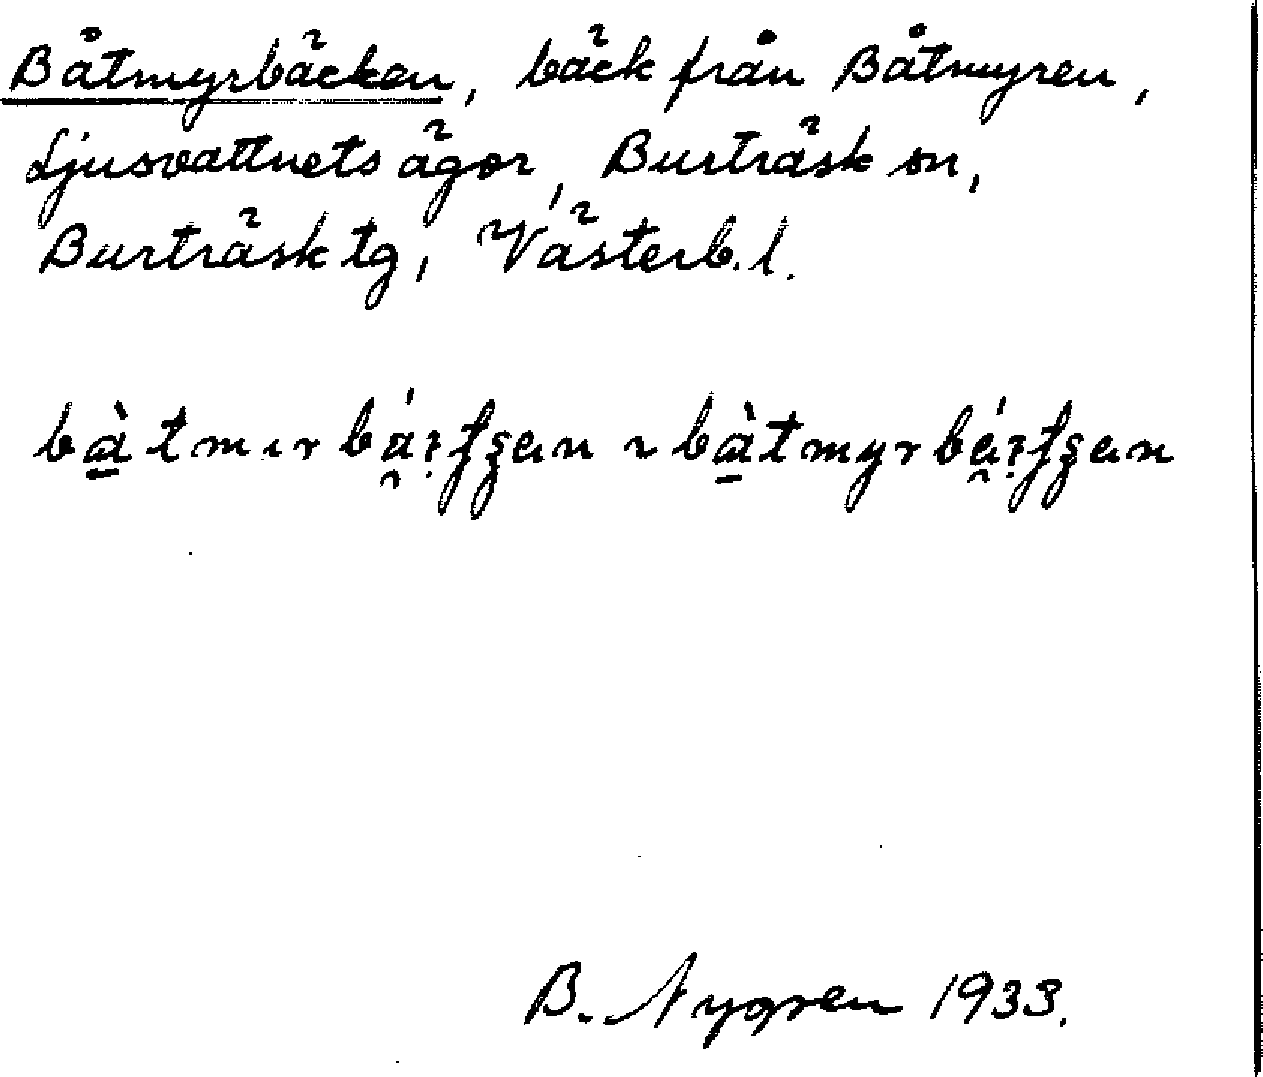 Båtmyrbäcken, bäck från Båtmyren,
Ljusvattnets ägor, Burträsk sn,
Burträsk tg, Västerb. l.
B. Nygren 1933.